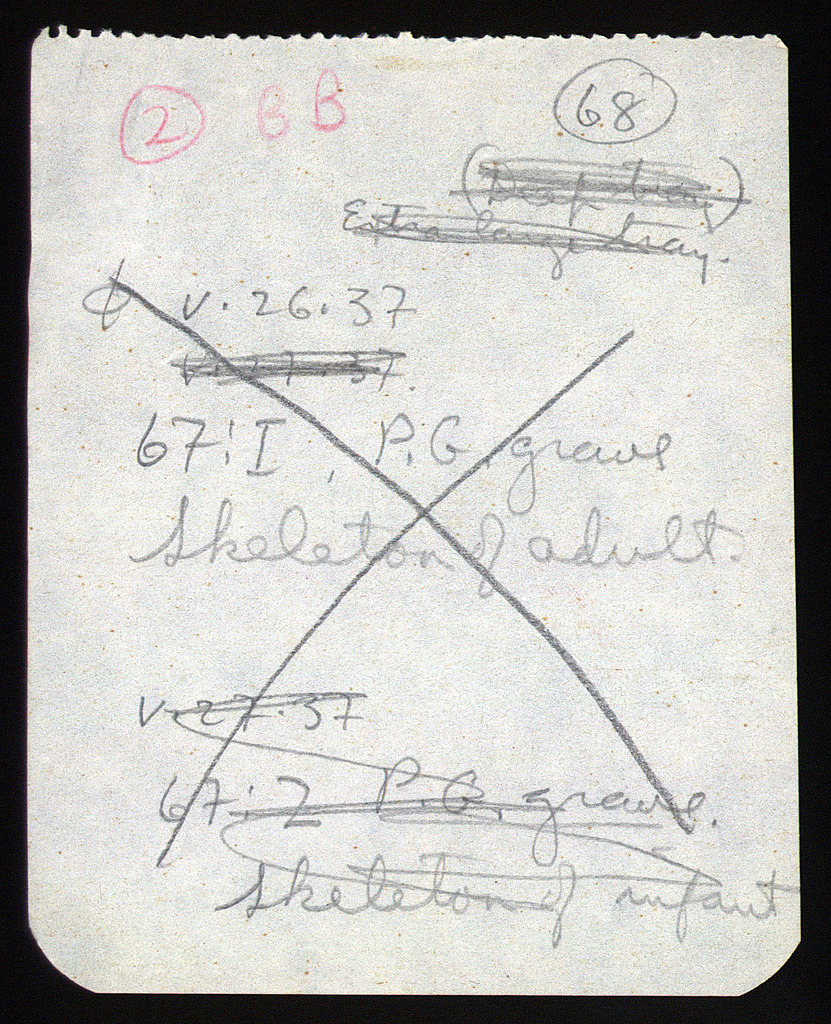 2 BB 68
(Deep tray)
Extra large tray.
φ V.26.37
V.27.37.
67:I, P.G. grave
Skeleton of adult.
V.27.37
67:2 P.G. grave.
Skeleton of infant